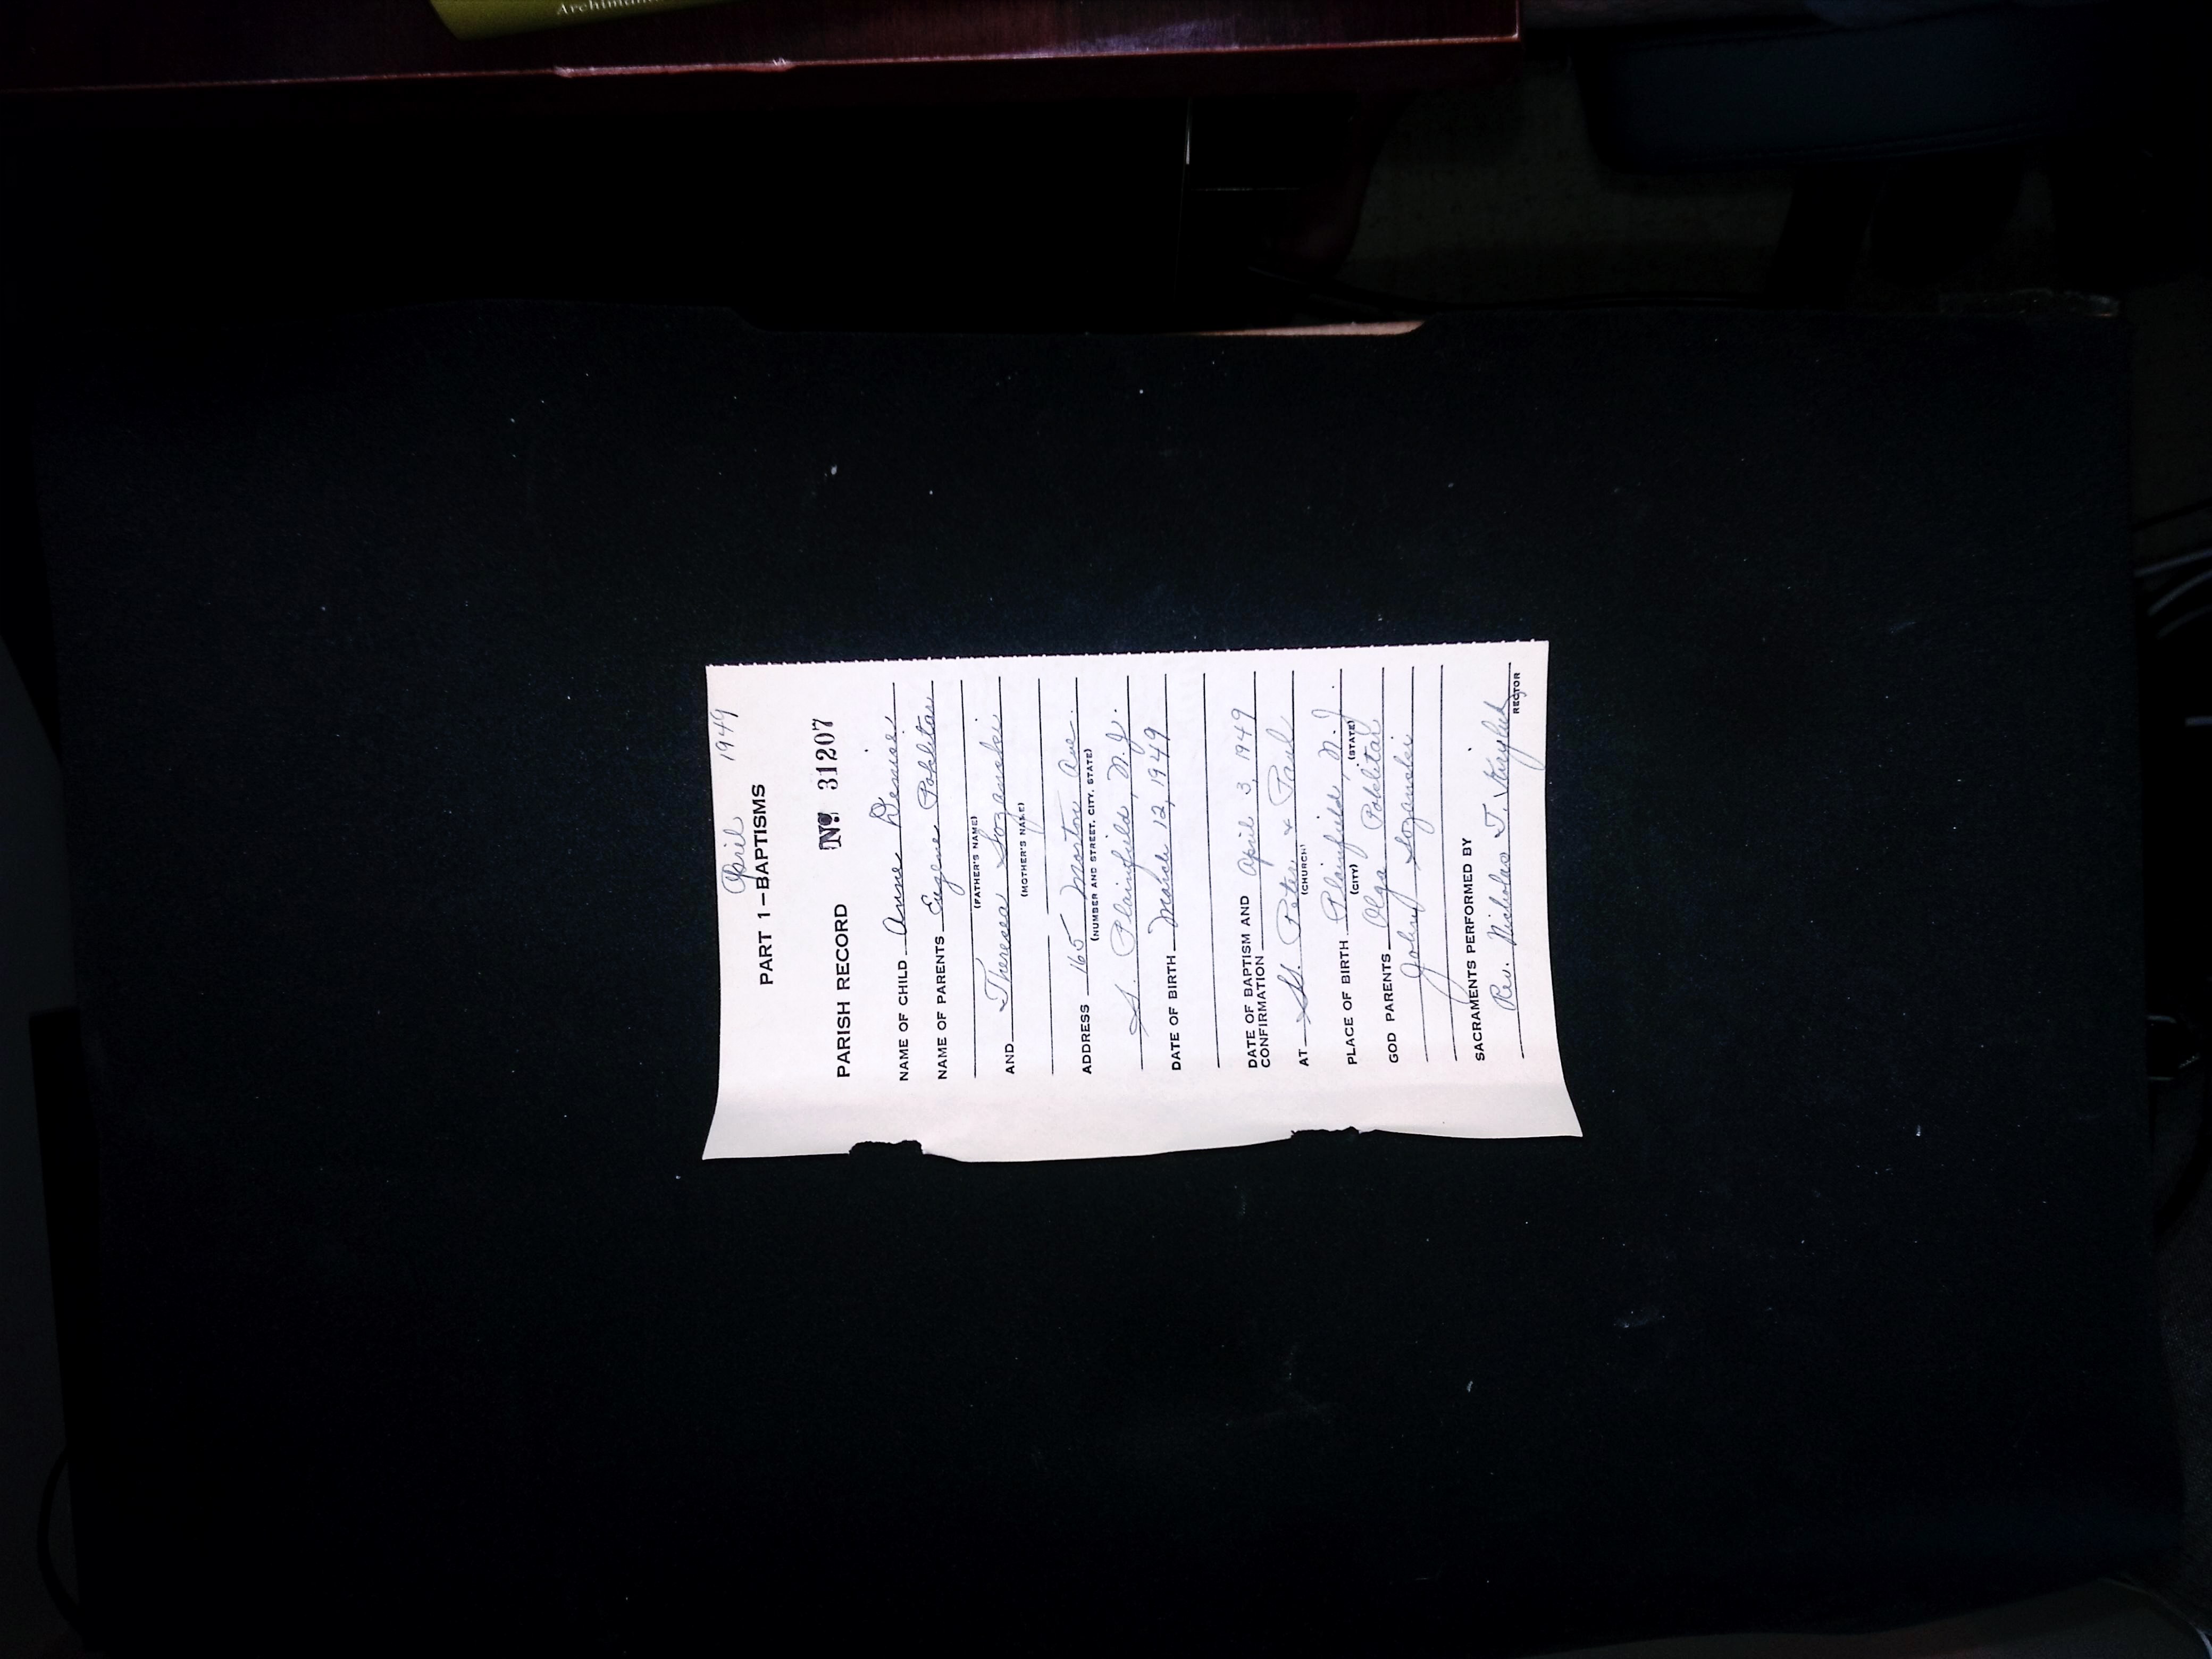 April 1949
PART 1—BAPTISMS
PARISH RECORD No. 31207
NAME OF CHILD Anne Denise
NAME OF PARENTS Eugene Poklitar
(FATHER'S NAME)
AND Theresea Sozanski
(MOTHER'S NAME)
ADDRESS 165 Morton Ave.
(NUMBER AND STREET, CITY, STATE)
S. Plainfield, N.J.
DATE OF BIRTH March 12, 1949
DATE OF BAPTISM AND
CONFIRMATION April 3, 1949
AT SS. Peter & Paul
(CHURCH)
PLACE OF BIRTH Plainfield, N.J.
(CITY) (STATE)
GOD PARENTS Olga Poklitar
John Sozanski
SACRAMENTS PERFORMED BY
Rev. Nicholas T. Kiryluk
RECTOR